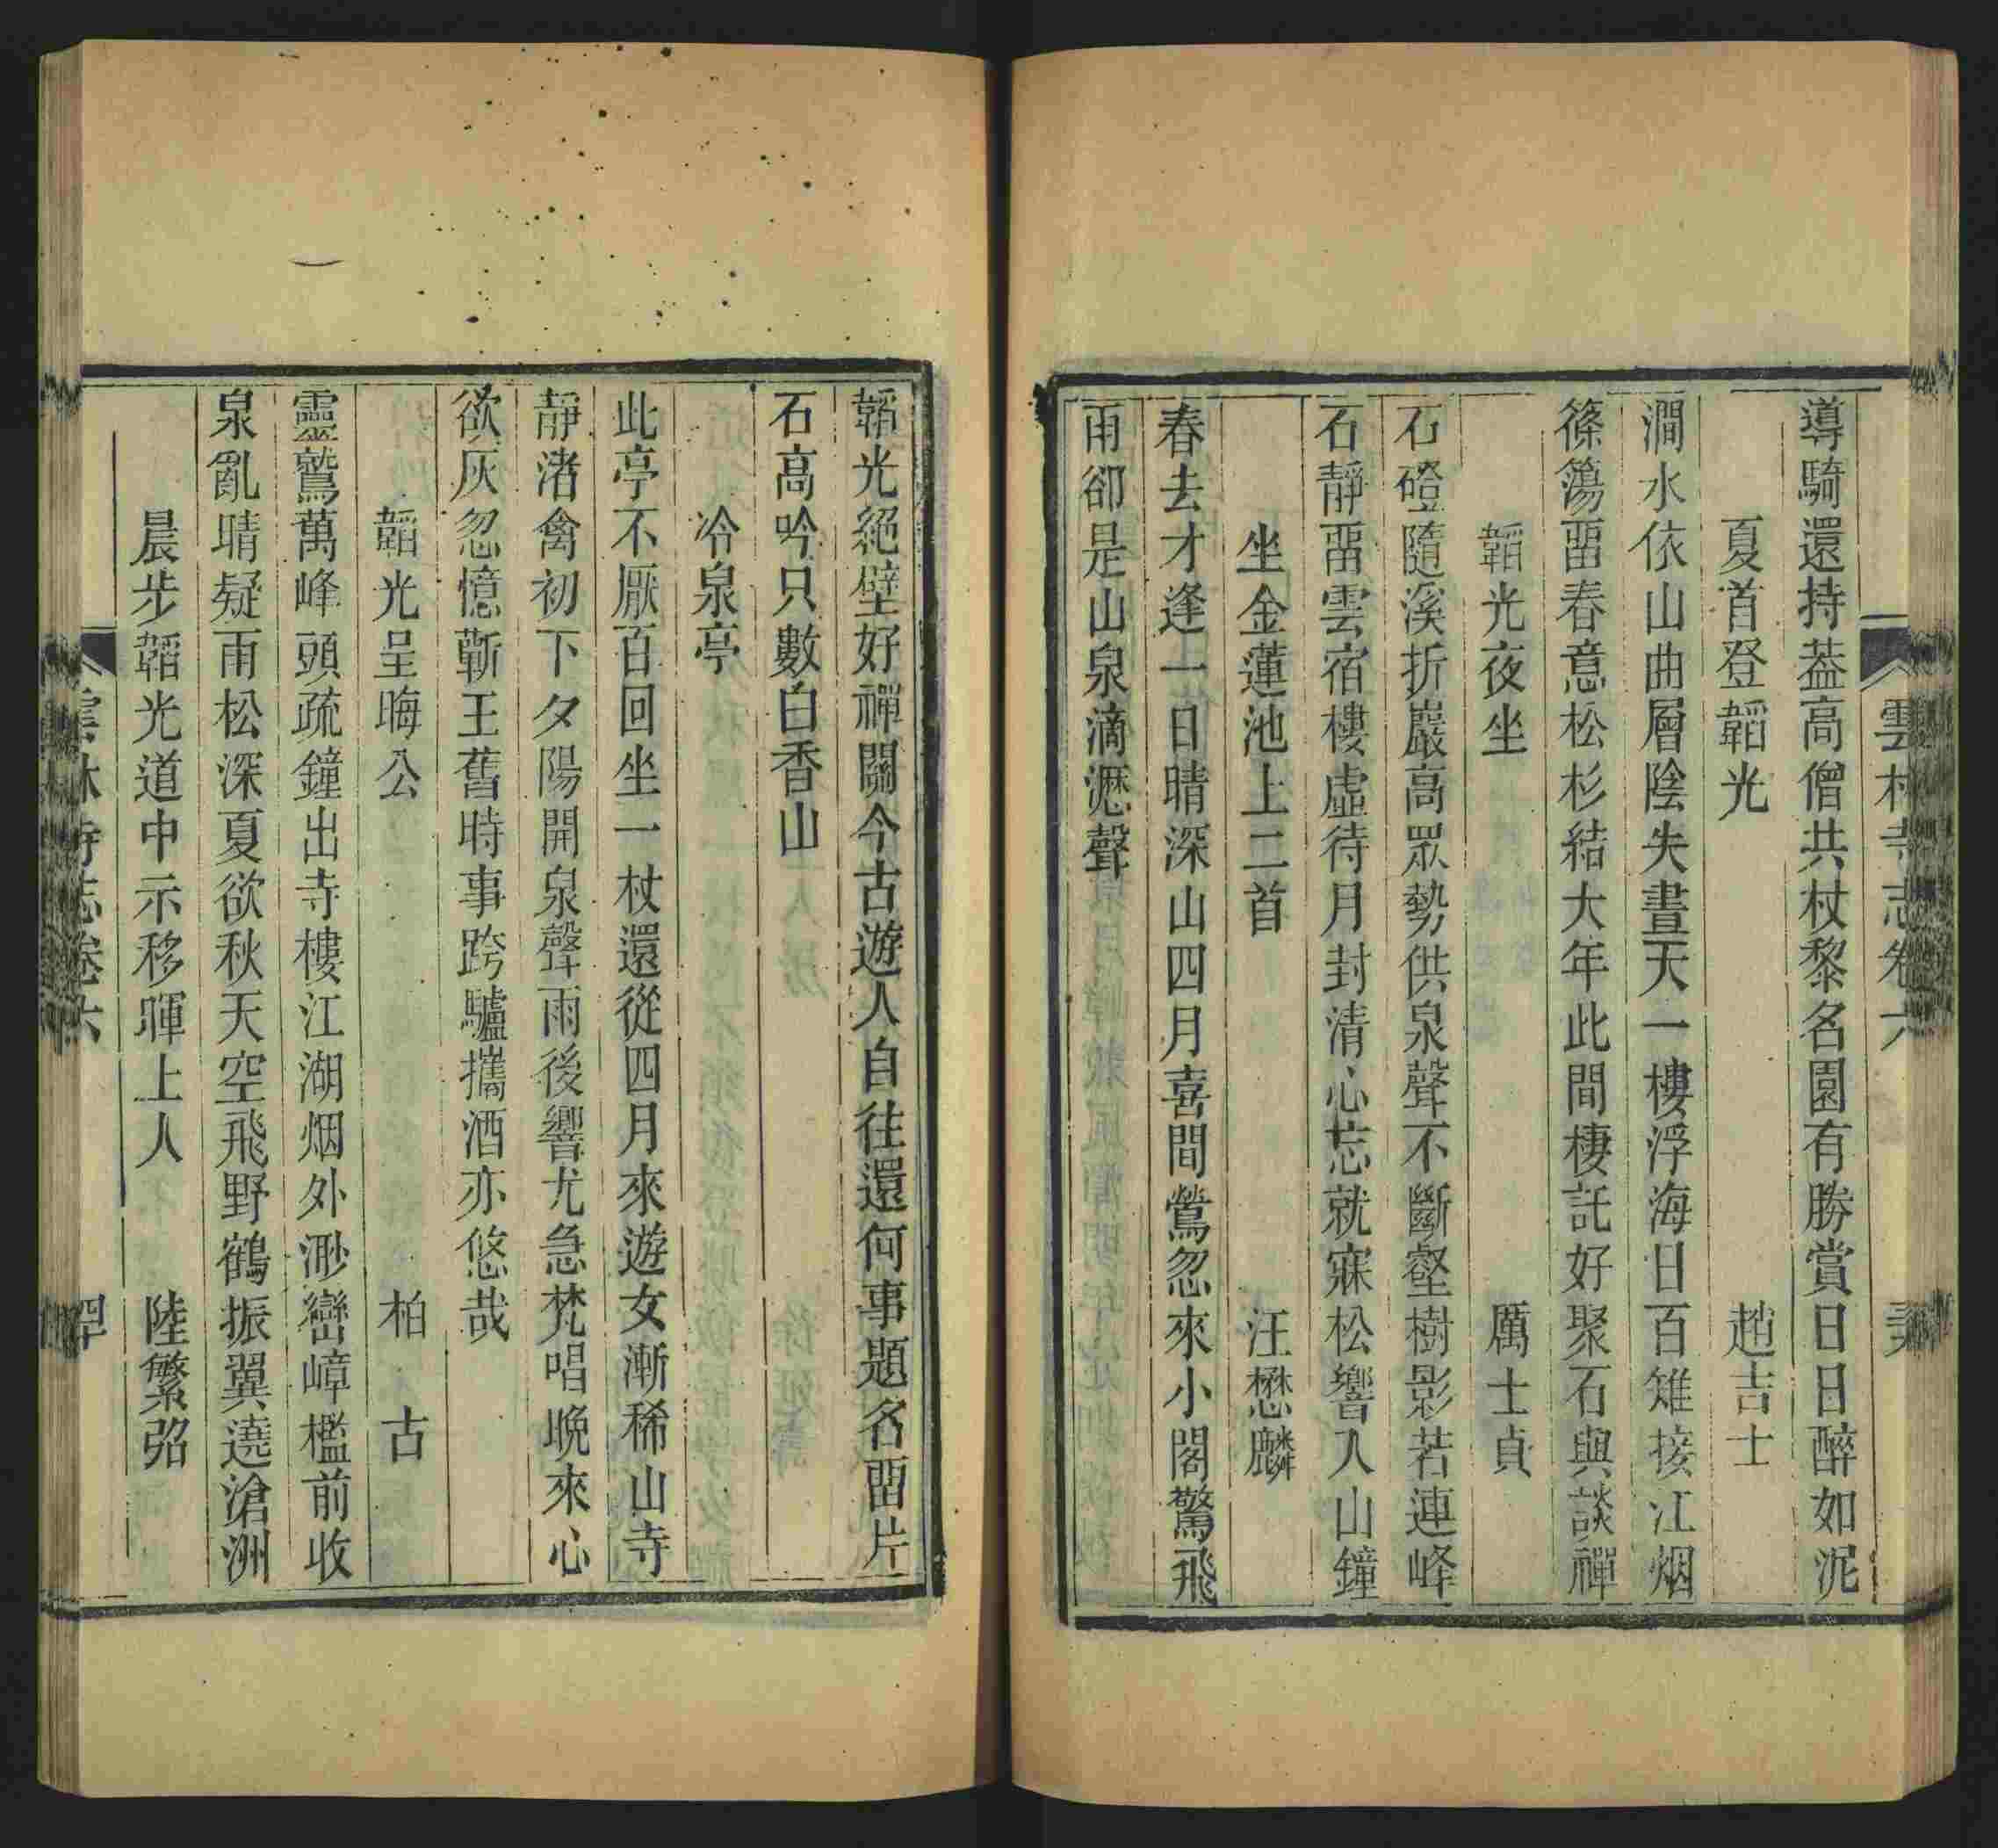 雲林寺志卷六
導騎還持葢高僧共杖黎名園有勝賞日日醉如泥
夏首登韜光 趙吉士
澗水依山曲層陰失晝天一樓浮海日百雉接江烟
篠簜畱春意松杉結大年此間棲託好聚石與談禪
韜光夜坐 厲士貞
石磴隨溪折巖高眾勢供泉聲不斷壑樹影若連峰
石靜畱雲宿樓虛待月封清心忘就寐松響入山鐘
坐金蓮池上二首 汪懋麟
春去才逢一日晴深山四月喜間鶯忽來小閣驚飛
雨卻是山泉滴瀝聲
韜光絕壁好禪關今古遊人自往還何事題名畱片
石高吟只數白香山
冷泉亭
此亭不厭百回坐一杖還從四月來遊女漸稀山寺
靜渚禽初下夕陽開泉聲雨後響尤急梵唱晚來心
欲灰忽憶蘄王舊時事跨驢攜酒亦悠哉
韜光呈晦公 柏古
靈鷲萬峰頭疏鐘出寺樓江湖烟外渺巒嶂檻前收
泉亂晴疑雨松深夏欲秋天空飛野鶴振翼遶滄洲
晨步韜光道中示移暉上人 陸繁弨
雲林寺志卷六